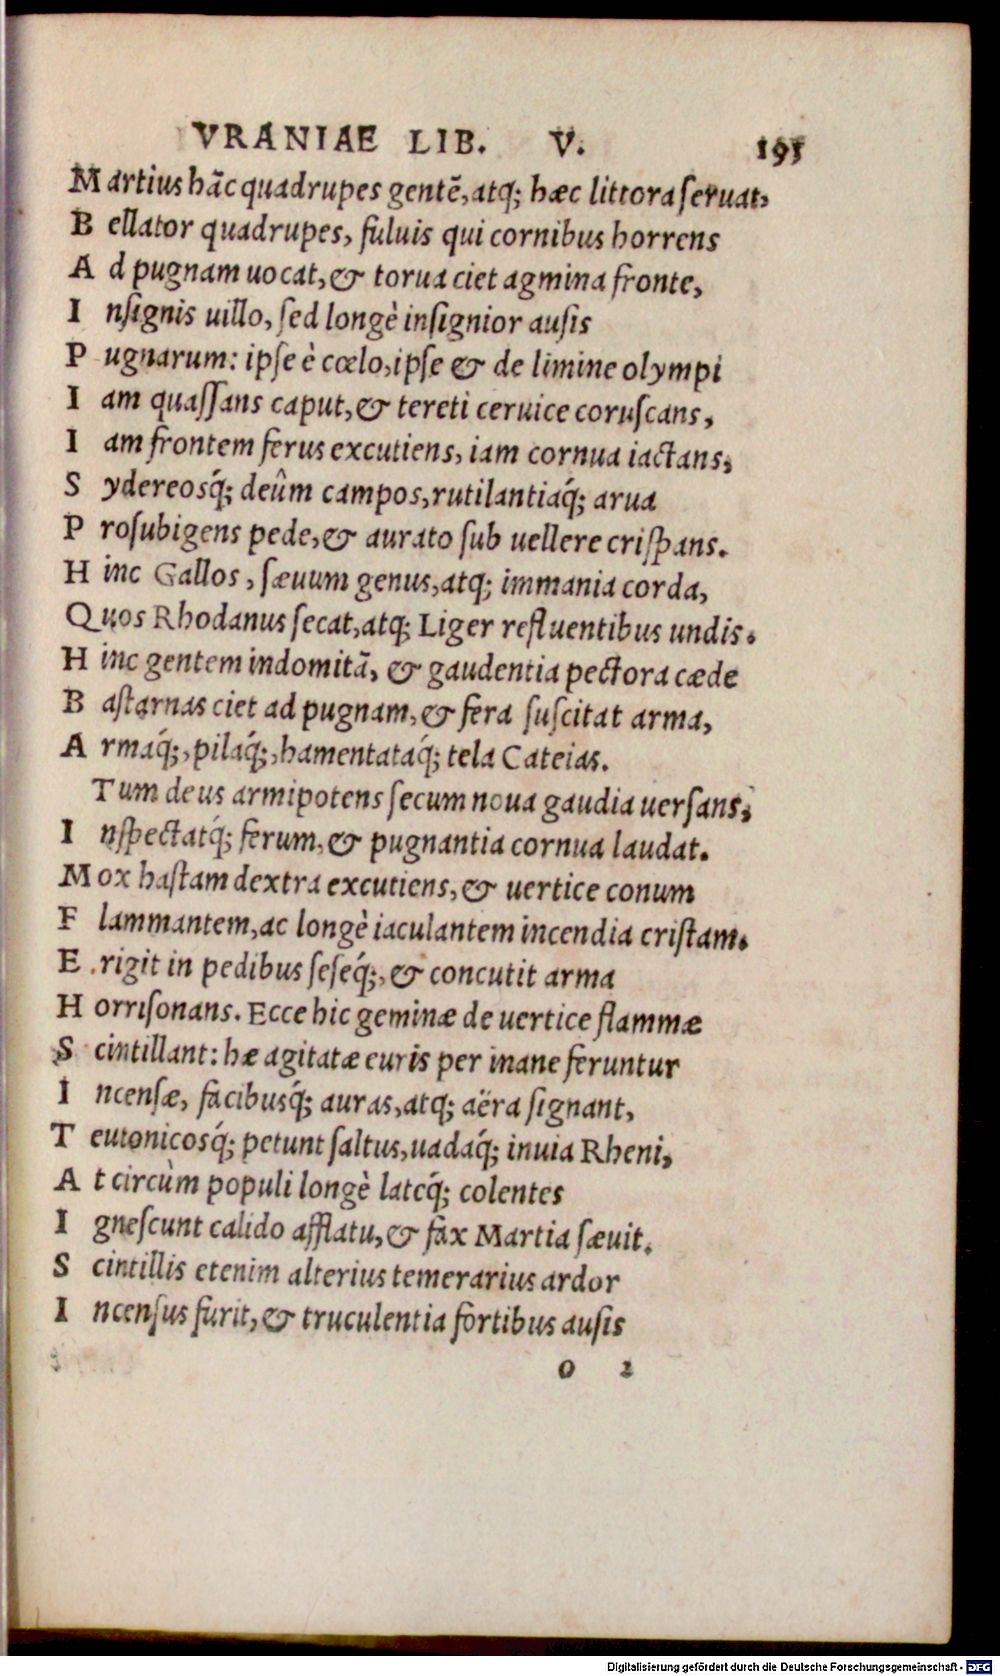 VRANIAE LIB. V. 195
Martius hãc quadrupes gentẽ, atq; hæc littora seruat,
Bellator quadrupes, fuluis qui cornibus horrens
Ad pugnam uocat, & torua ciet agmina fronte,
Insignis uillo, sed longè insignior ausis
Pugnarum: ipse è cœlo, ipse & de limine olympi
Iam quassans caput, & tereti ceruice coruscans,
Iam frontem ferus excutiens, iam cornua iactans,
Sydereosq́; deûm campos, rutilantiaq́; arua
Prosubigens pede, & aurato sub uellere crispans.
Hinc Gallos, sæuum genus, atq; immania corda,
Quos Rhodanus secat, atq; Liger refluentibus undis.
Hinc gentem indomitã, & gaudentia pectora cæde
Bastarnas ciet ad pugnam, & fera suscitat arma,
Armaq́;, pilaq́;, hamentataq́; tela Cateias.
Tum deus armipotens secum noua gaudia uersans,
Inspectatq́; ferum, & pugnantia cornua laudat.
Mox hastam dextra excutiens, & uertice conum
Flammantem, ac longè iaculantem incendia cristam.
Erigit in pedibus seseq́;, & concutit arma
Horrisonans. Ecce hic geminæ de uertice flammæ
Scintillant: hæ agitatæ euris per inane feruntur
Incensæ, facibusq́; auras, atq; aëra signant,
Teutonicosq́; petunt saltus, uadaq́; inuia Rheni,
At circùm populi longè lateq́; colentes
Ignescunt calido afflatu, & fax Martia sæuit.
Scintillis etenim alterius temerarius ardor
Incensus furit, & truculentia fortibus ausis
o 2
Digitalisierung gefördert durch die Deutsche Forschungsgemeinschaft - DFG